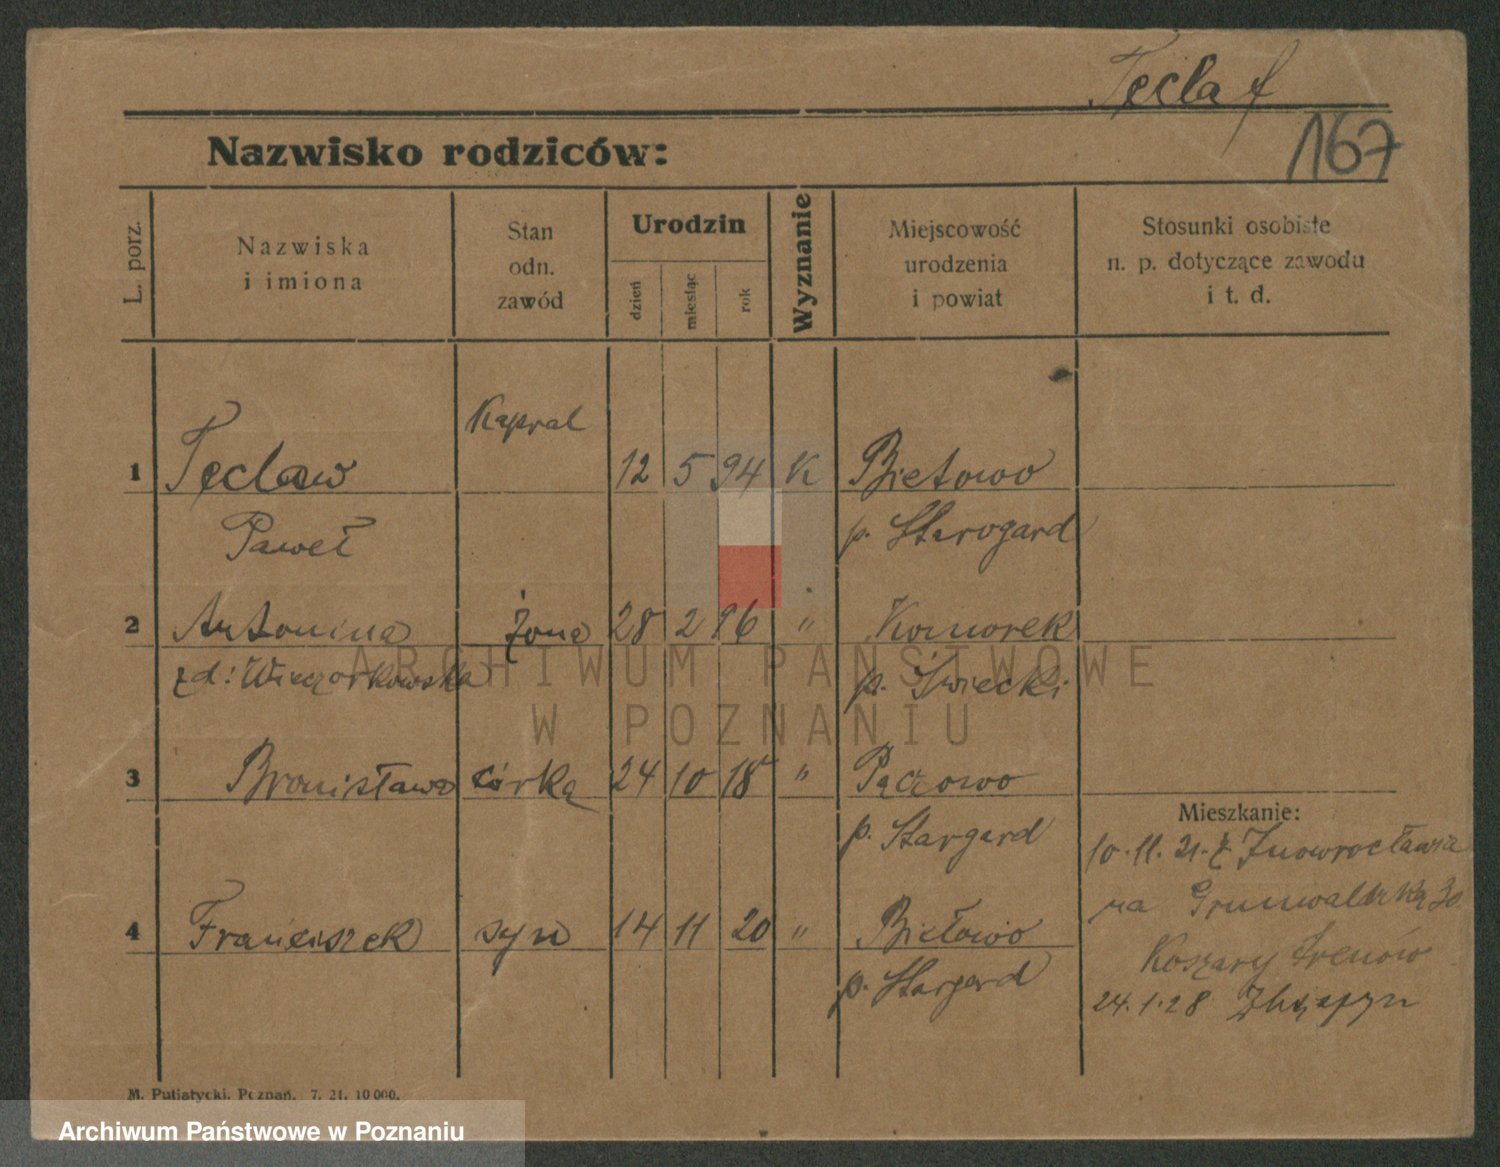 Tęcław
167
Nazwisko rodziców:
L. porz.
Nazwiska
i imiona
Stan
odn.
zawód
Urodzin
dzień
miesiąc
rok
Wyznanie
Miejscowość
urodzenia
i powiat
Stosunki osobiste
n. p. dotyczące zawodu
i t. d.
Kapral
1 Tęcław 12 5 94 K Bietowo
Paweł p. Starogard
2 Antonina żona 28 2 96 " Komorek
zd: Wieczorkowska p. Świecki
3 Bronisława córka 24 10 18 " Pączowo
p. Stargard
Mieszkanie:
10.11.21. z Inowrocławia
4 Franciszek syn 14 11 20 " Bietowo
na Grunwaldzką 30
p. Stargard
Koszary trenów
24.1.28 Zbąszyn
M. Putiatycki, Poznań. 7. 21. 10 000.
ARCHIWUM PAŃSTWOWE
W POZNANIU
Archiwum Państwowe w Poznaniu